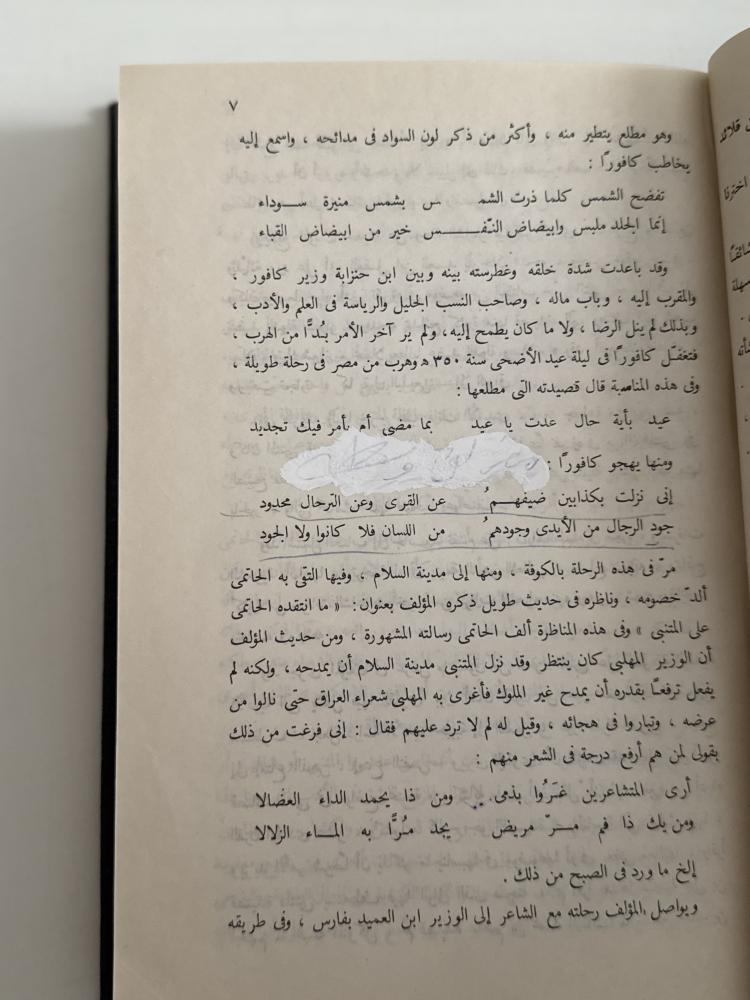 ٧
وهو مطلع يتطير منه ، وأكثر من ذكر لون السواد فى مدائحه ، واسمع إليه
يخاطب كافورًا :
تفضح الشمس كلما ذرت الشمـ ـس بشمس منيرة ســوداء
إنما الجلد ملبس وابيضاض النّفـــــس خير من ابيضاض القباء
وقد باعدت شدة خلقه وغطرسته بينه وبين ابن حنزابة وزير كافور ،
والمقرب إليه ، وباب ماله ، وصاحب النسب الجليل والرياسة فى العلم والأدب ،
وبذلك لم ينل الرضا ، ولا ما كان يطمح إليه، ولم ير آخر الأمر بُدًّا من الهرب ،
فتغفّل كافورًا فى ليلة عيد الأضحى سنة ٣٥٠ ه وهرب من مصر فى رحلة طويلة ،
وفى هذه المناسبة قال قصيدته التى مطلعها :
عيد بأية حال عدت يا عيد بما مضى أم بأمر فيك تجديد
ومنها يهجو كافورًا :
إنى نزلت بكذابين ضيفهــمُ عن القرى وعن الترحال محدود
جود الرجال من الأيدى وجودهمُ من اللسان فلا كانوا ولا الجود
مرّ فى هذه الرحلة بالكوفة ، ومنها إلى مدينة السلام ، وفيها التقى به الحاتمى
ألدّ خصومه ، وناظره فى حديث طويل ذكره المؤلف بعنوان : « ما انتقده الحاتمى
على المتنبى » وفى هذه المناظرة ألف الحاتمى رسالته المشهورة ، ومن حديث المؤلف
أن الوزير المهلبى كان ينتظر وقد نزل المتنبى مدينة السلام أن يمدحه ، ولكنه لم
يفعل ترفعًا بقدره أن يمدح غير الملوك فأغرى به المهلبى شعراء العراق حتى نالوا من
عرضه ، وتباروا فى هجائه ، وقيل له لم لا ترد عليهم فقال : إنى فرغت من ذلك
بقولى لمن هم أرفع درجة فى الشعر منهم :
أرى المتشاعرين غَرُوا بذمى .. ومن ذا يحمد الداء العضالا
ومن يك ذا فم مــرّ مريض يجد مُرًّا به المــاء الزلالا
إلخ ما ورد فى الصبح من ذلك .
ويواصل المؤلف رحلته مع الشاعر إلى الوزير ابن العميد بفارس ، وفى طريقه